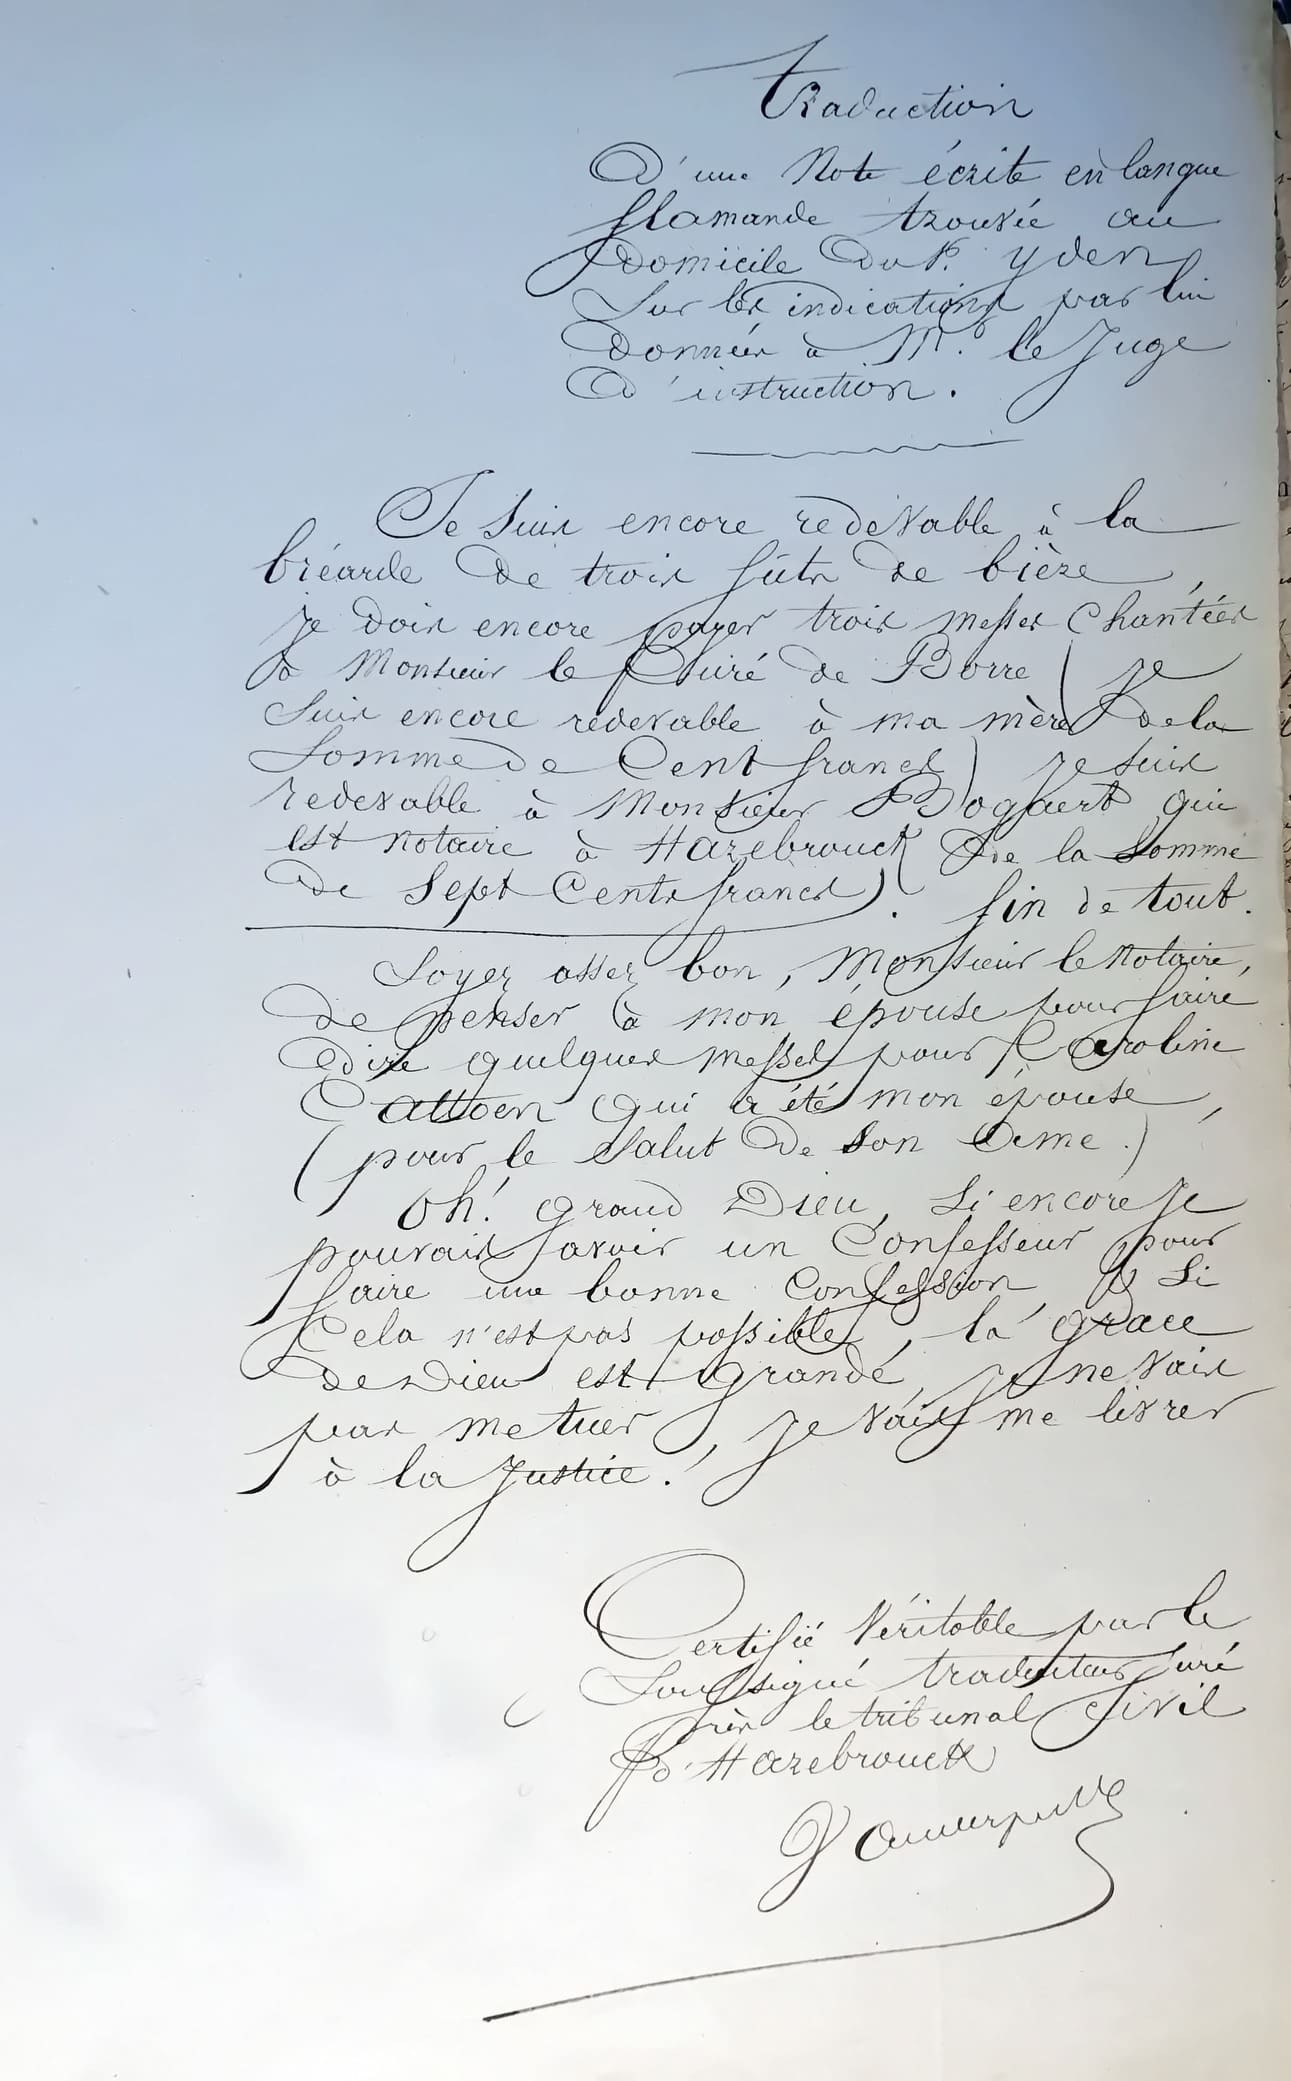 Traduction
D'une Note écrite en langue
flamande trouvée au
domicile du S. Yden
Sur les indications par lui
données à Mr. le Juge
d'instruction.
Je suis encore redevable à la
bréarde de trois fûts de bière,
je dois encore payer trois messes chantées
à Monsieur le Curé de Borre ( je
suis encore redevable à ma mère de la
somme de Cent francs ) je suis
redevable à Monsieur Bogaert qui
est notaire à Hazebrouck ( de la somme
de Sept Cents francs ). fin de tout.
Soyez assez bon, Monsieur le Notaire,
de penser à mon épouse pour faire
dire quelques messes pour Caroline
Cattoen qui a été mon épouse,
( pour le salut de son âme. )
Oh! grand Dieu, si encore je
pouvais avoir un Confesseur pour
faire une bonne Confession, & si
Cela n'est pas possible, la grâce
de Dieu est grande, je ne vais
pas me tuer, je vais me livrer
à la Justice!
Certifié Véritable par le
Soussigné traducteur juré
près le tribunal Civil
d'Hazebrouck